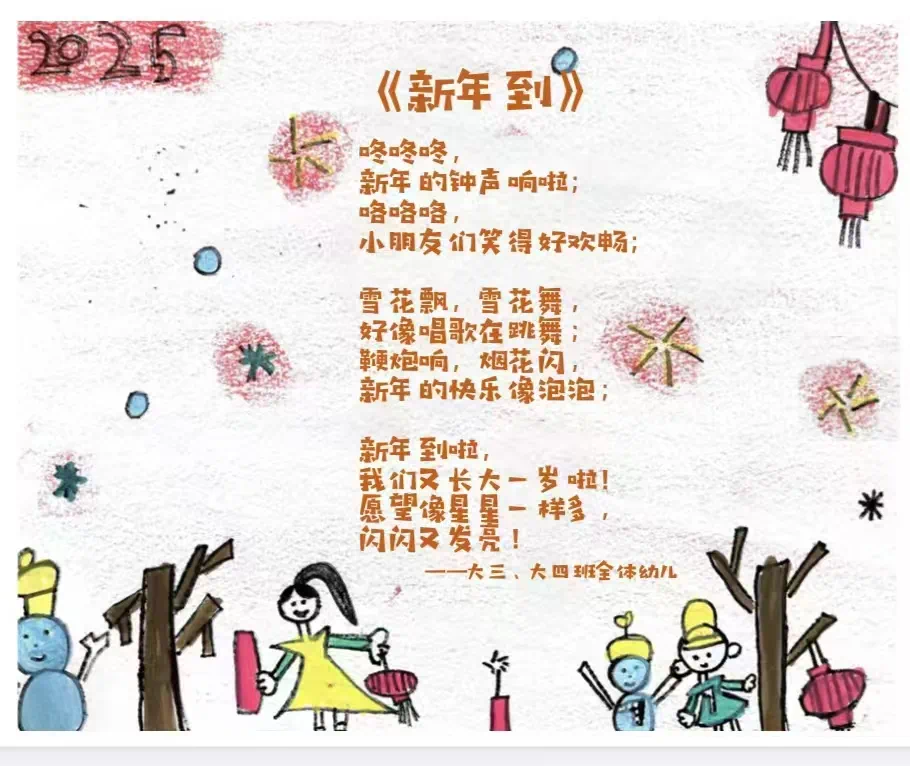 2025
《新年到》
咚咚咚，
新年的钟声响啦；
咯咯咯，
小朋友们笑得好欢畅；
雪花飘，雪花舞，
好像唱歌在跳舞；
鞭炮响，烟花闪，
新年的快乐像泡泡；
新年到啦，
我们又长大一岁啦！
愿望像星星一样多，
闪闪又发亮！
——大三、大四班全体幼儿